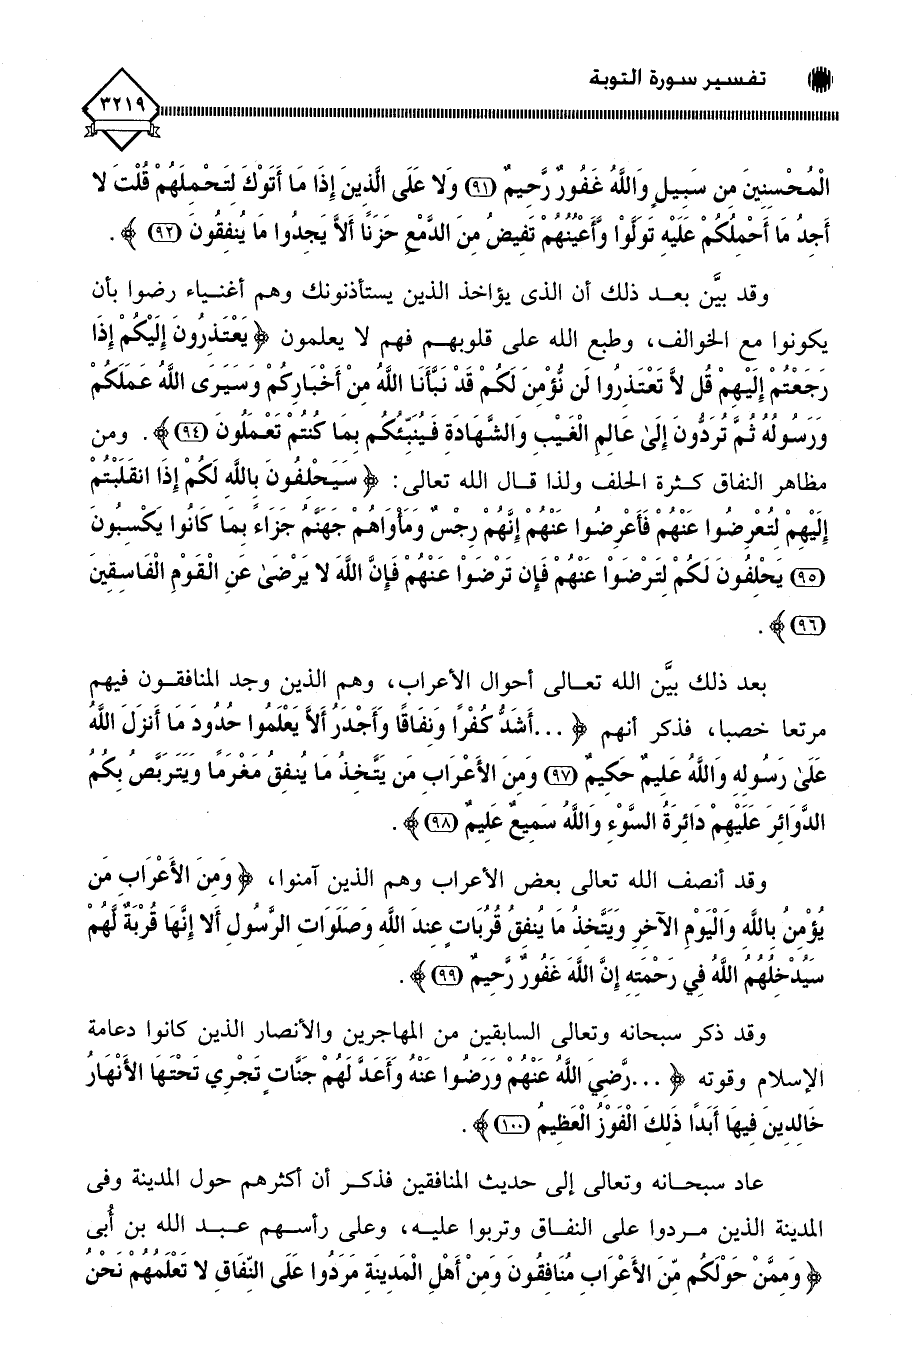 تفسير سورة التوبة
٣٢١٩
الْمُحْسِنِينَ مِن سَبِيلٍ وَاللَّهُ غَفُورٌ رَّحِيمٌ (٩١) وَلا عَلَى الَّذِينَ إِذَا مَا أَتَوْكَ لِتَحْمِلَهُمْ قُلْتَ لا
أَجِدُ مَا أَحْمِلُكُمْ عَلَيْهِ تَوَلَّوْا وَّأَعْيُنُهُمْ تَفِيضُ مِنَ الدَّمْعِ حَزَنًا أَلاَّ يَجِدُوا مَا يُنفِقُونَ (٩٢) ﴾ .
وقد بيَّن بعد ذلك أن الذى يؤاخذ الذين يستأذنونك وهم أغنياء رضوا بأن
يكونوا مع الخوالف، وطبع الله على قلوبهم فهم لا يعلمون ﴿ يَعْتَذِرُونَ إِلَيْكُمْ إِذَا
رَجَعْتُمْ إِلَيْهِمْ قُل لاَّ تَعْتَذِرُوا لَن نُّؤْمِنَ لَكُمْ قَدْ نَبَّأَنَا اللَّهُ مِنْ أَخْبَارِكُمْ وَسَيَرَى اللَّهُ عَمَلَكُمْ
وَرَسُولُهُ ثُمَّ تُرَدُّونَ إِلَىٰ عَالِمِ الْغَيْبِ وَالشَّهَادَةِ فَيُنَبِّئُكُم بِمَا كُنتُمْ تَعْمَلُونَ (٩٤) ﴾. ومن
مظاهر النفاق كثرة الحلف ولذا قال الله تعالى: ﴿ سَيَحْلِفُونَ بِاللَّهِ لَكُمْ إِذَا انقَلَبْتُمْ
إِلَيْهِمْ لِتُعْرِضُوا عَنْهُمْ فَأَعْرِضُوا عَنْهُمْ إِنَّهُمْ رِجْسٌ وَمَأْوَاهُمْ جَهَنَّمُ جَزَاءً بِمَا كَانُوا يَكْسِبُونَ
(٩٥) يَحْلِفُونَ لَكُمْ لِتَرْضَوْا عَنْهُمْ فَإِن تَرْضَوْا عَنْهُمْ فَإِنَّ اللَّهَ لا يَرْضَىٰ عَنِ الْقَوْمِ الْفَاسِقِينَ
(٩٦) ﴾ .
بعد ذلك بيَّن الله تعالى أحوال الأعراب، وهم الذين وجد المنافقون فيهم
مرتعا خصبا، فذكر أنهم ﴿ ...أَشَدُّ كُفْرًا وَنِفَاقًا وَأَجْدَرُ أَلاَّ يَعْلَمُوا حُدُودَ مَا أَنزَلَ اللَّهُ
عَلَىٰ رَسُولِهِ وَاللَّهُ عَلِيمٌ حَكِيمٌ (٩٧) وَمِنَ الأَعْرَابِ مَن يَتَّخِذُ مَا يُنفِقُ مَغْرَمًا وَيَتَرَبَّصُ بِكُمُ
الدَّوَائِرَ عَلَيْهِمْ دَائِرَةُ السَّوْءِ وَاللَّهُ سَمِيعٌ عَلِيمٌ (٩٨) ﴾ .
وقد أنصف الله تعالى بعض الأعراب وهم الذين آمنوا، ﴿ وَمِنَ الأَعْرَابِ مَن
يُؤْمِنُ بِاللَّهِ وَالْيَوْمِ الآخِرِ وَيَتَّخِذُ مَا يُنفِقُ قُرُبَاتٍ عِندَ اللَّهِ وَصَلَوَاتِ الرَّسُولِ أَلا إِنَّهَا قُرْبَةٌ لَّهُمْ
سَيُدْخِلُهُمُ اللَّهُ فِي رَحْمَتِهِ إِنَّ اللَّهَ غَفُورٌ رَّحِيمٌ (٩٩) ﴾ .
وقد ذكر سبحانه وتعالى السابقين من المهاجرين والأنصار الذين كانوا دعامة
الإسلام وقوته ﴿ ...رَّضِيَ اللَّهُ عَنْهُمْ وَرَضُوا عَنْهُ وَأَعَدَّ لَهُمْ جَنَّاتٍ تَجْرِي تَحْتَهَا الأَنْهَارُ
خَالِدِينَ فِيهَا أَبَدًا ذَلِكَ الْفَوْزُ الْعَظِيمُ (١٠٠) ﴾ .
عاد سبحانه وتعالى إلى حديث المنافقين فذكر أن أكثرهم حول المدينة وفى
المدينة الذين مردوا على النفاق وتربوا عليه، وعلى رأسهم عبد الله بن أُبى
﴿ وَمِمَّنْ حَوْلَكُم مِّنَ الأَعْرَابِ مُنَافِقُونَ وَمِنْ أَهْلِ الْمَدِينَةِ مَرَدُوا عَلَى النِّفَاقِ لا تَعْلَمُهُمْ نَحْنُ